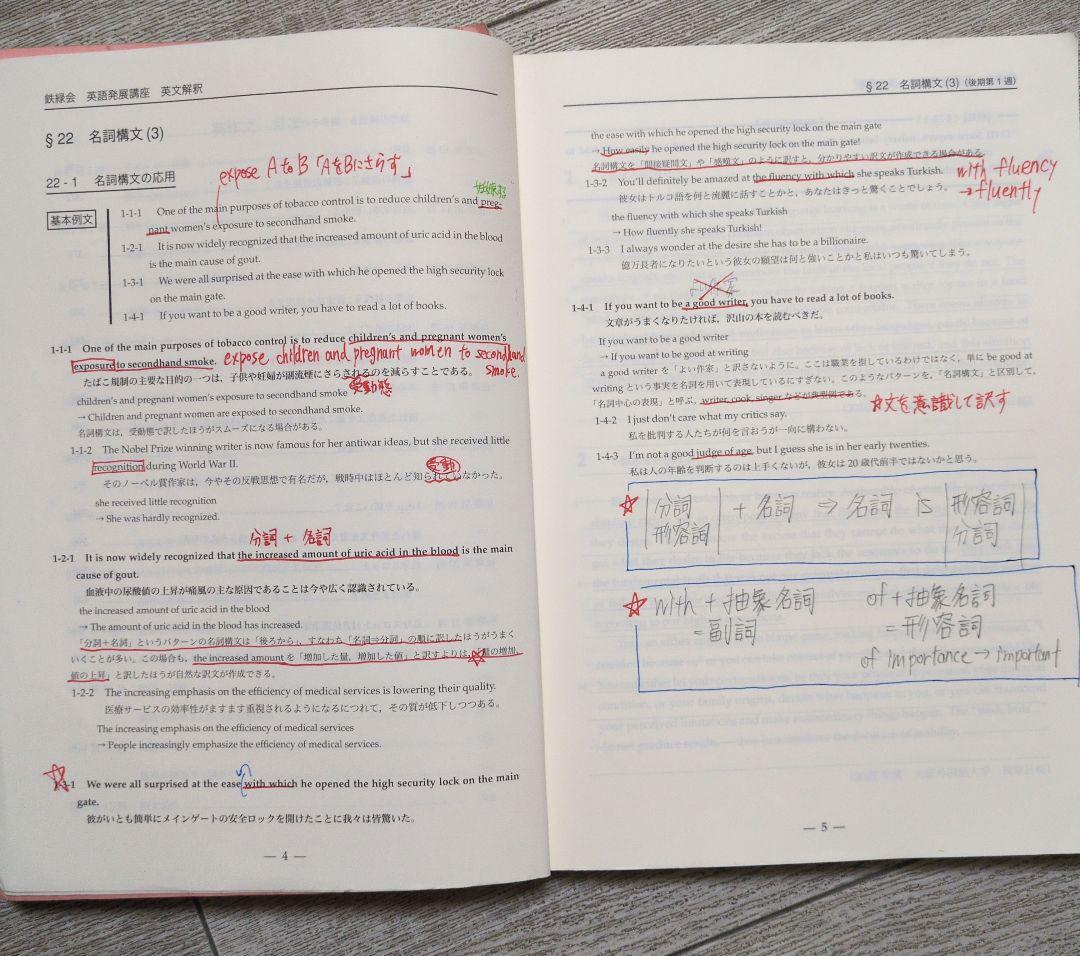 鉄緑会 英語発展講座 英文解釈
§22 名詞構文(3)
22-1 名詞構文の応用
expose A to B「AをBにさらす」
基本例文
1-1-1 One of the main purposes of tobacco control is to reduce children's and preg-
nant women's exposure to secondhand smoke.
1-2-1 It is now widely recognized that the increased amount of uric acid in the blood
is the main cause of gout.
1-3-1 We were all surprised at the ease with which he opened the high security lock
on the main gate.
1-4-1 If you want to be a good writer, you have to read a lot of books.
1-1-1 One of the main purposes of tobacco control is to reduce children's and pregnant women's
exposure to secondhand smoke. expose children and pregnant women to secondhand
smoke.
たばこ規制の主要な目的の一つは，子供や妊婦が副流煙にさらされるのを減らすことである。
受動態
children's and pregnant women's exposure to secondhand smoke
→ Children and pregnant women are exposed to secondhand smoke.
名詞構文は，受動態で訳したほうがスムーズになる場合がある。
1-1-2 The Nobel Prize winning writer is now famous for her antiwar ideas, but she received little
recognition during World War II.
受動
そのノーベル賞作家は，今やその反戦思想で有名だが，戦時中はほとんど知られていなかった。
she received little recognition
→ She was hardly recognized.
分詞 + 名詞
1-2-1 It is now widely recognized that the increased amount of uric acid in the blood is the main
cause of gout.
血液中の尿酸値の上昇が痛風の主な原因であることは今や広く認識されている。
the increased amount of uric acid in the blood
→ The amount of uric acid in the blood has increased.
「分詞＋名詞」というパターンの名詞構文は「後ろから」，すなわち「名詞⇒分詞」の順に訳したほうがうま
くいくことが多い。この場合も，the increased amount を「増加した量，増加した値」と訳すよりは，「量の増加，
値の上昇」と訳したほうが自然な訳文が作成できる。
1-2-2 The increasing emphasis on the efficiency of medical services is lowering their quality.
医療サービスの効率性がますます重視されるようになるにつれて，その質が低下しつつある。
The increasing emphasis on the efficiency of medical services
→ People increasingly emphasize the efficiency of medical services.
1-3-1 We were all surprised at the ease with which he opened the high security lock on the main
gate.
彼がいとも簡単にメインゲートの安全ロックを開けたことに我々は皆驚いた。
— 4 —
§22 名詞構文(3)（後期第1週）
the ease with which he opened the high security lock on the main gate
→ How easily he opened the high security lock on the main gate!
名詞構文を「間接疑問文」や「感嘆文」のように訳すと，分かりやすい訳文が作成できる場合がある。
1-3-2 You'll definitely be amazed at the fluency with which she speaks Turkish.
with fluency
→ fluently
彼女はトルコ語を何と流麗に話すことかと，あなたはきっと驚くことでしょう。
the fluency with which she speaks Turkish
→ How fluently she speaks Turkish!
1-3-3 I always wonder at the desire she has to be a billionaire.
億万長者になりたいという彼女の願望は何と強いことかと私はいつも驚いてしまう。
1-4-1 If you want to be a good writer, you have to read a lot of books.
文章がうまくなりたければ，沢山の本を読むべきだ。
If you want to be a good writer
→ If you want to be good at writing
a good writer を「よい作家」と訳さないように。ここは職業を指しているわけではなく，単に be good at
writing という事実を名詞を用いて表現しているにすぎない。このようなパターンを，「名詞構文」と区別して，
「名詞中心の表現」と呼ぶ。writer, cook, singer などが典型例である。
☆文を意識して訳す
1-4-2 I just don't care what my critics say.
私を批判する人たちが何を言おうが一向に構わない。
1-4-3 I'm not a good judge of age, but I guess she is in her early twenties.
私は人の年齢を判断するのは上手くないが，彼女は20歳代前半ではないかと思う。
☆ 分詞 + 名詞 ⇒ 名詞 is 形容詞
形容詞 分詞
☆ with + 抽象名詞 of + 抽象名詞
= 副詞 = 形容詞
of importance → important
— 5 —